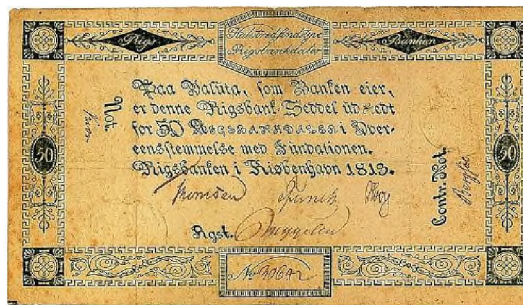 Rigs
Halvtredsindstyve
Rigsbankdaler
Banken
Paa Valuta, som Banken eier,
er denne Rigsbank-Seddel udstedt
for 50 RIGSBANKDALER i Over-
eensstemmelse med Fundationen.
Rigsbanken i Kiøbenhavn 1813.
50
50
Not.
Contr. Not.
Agst.
No